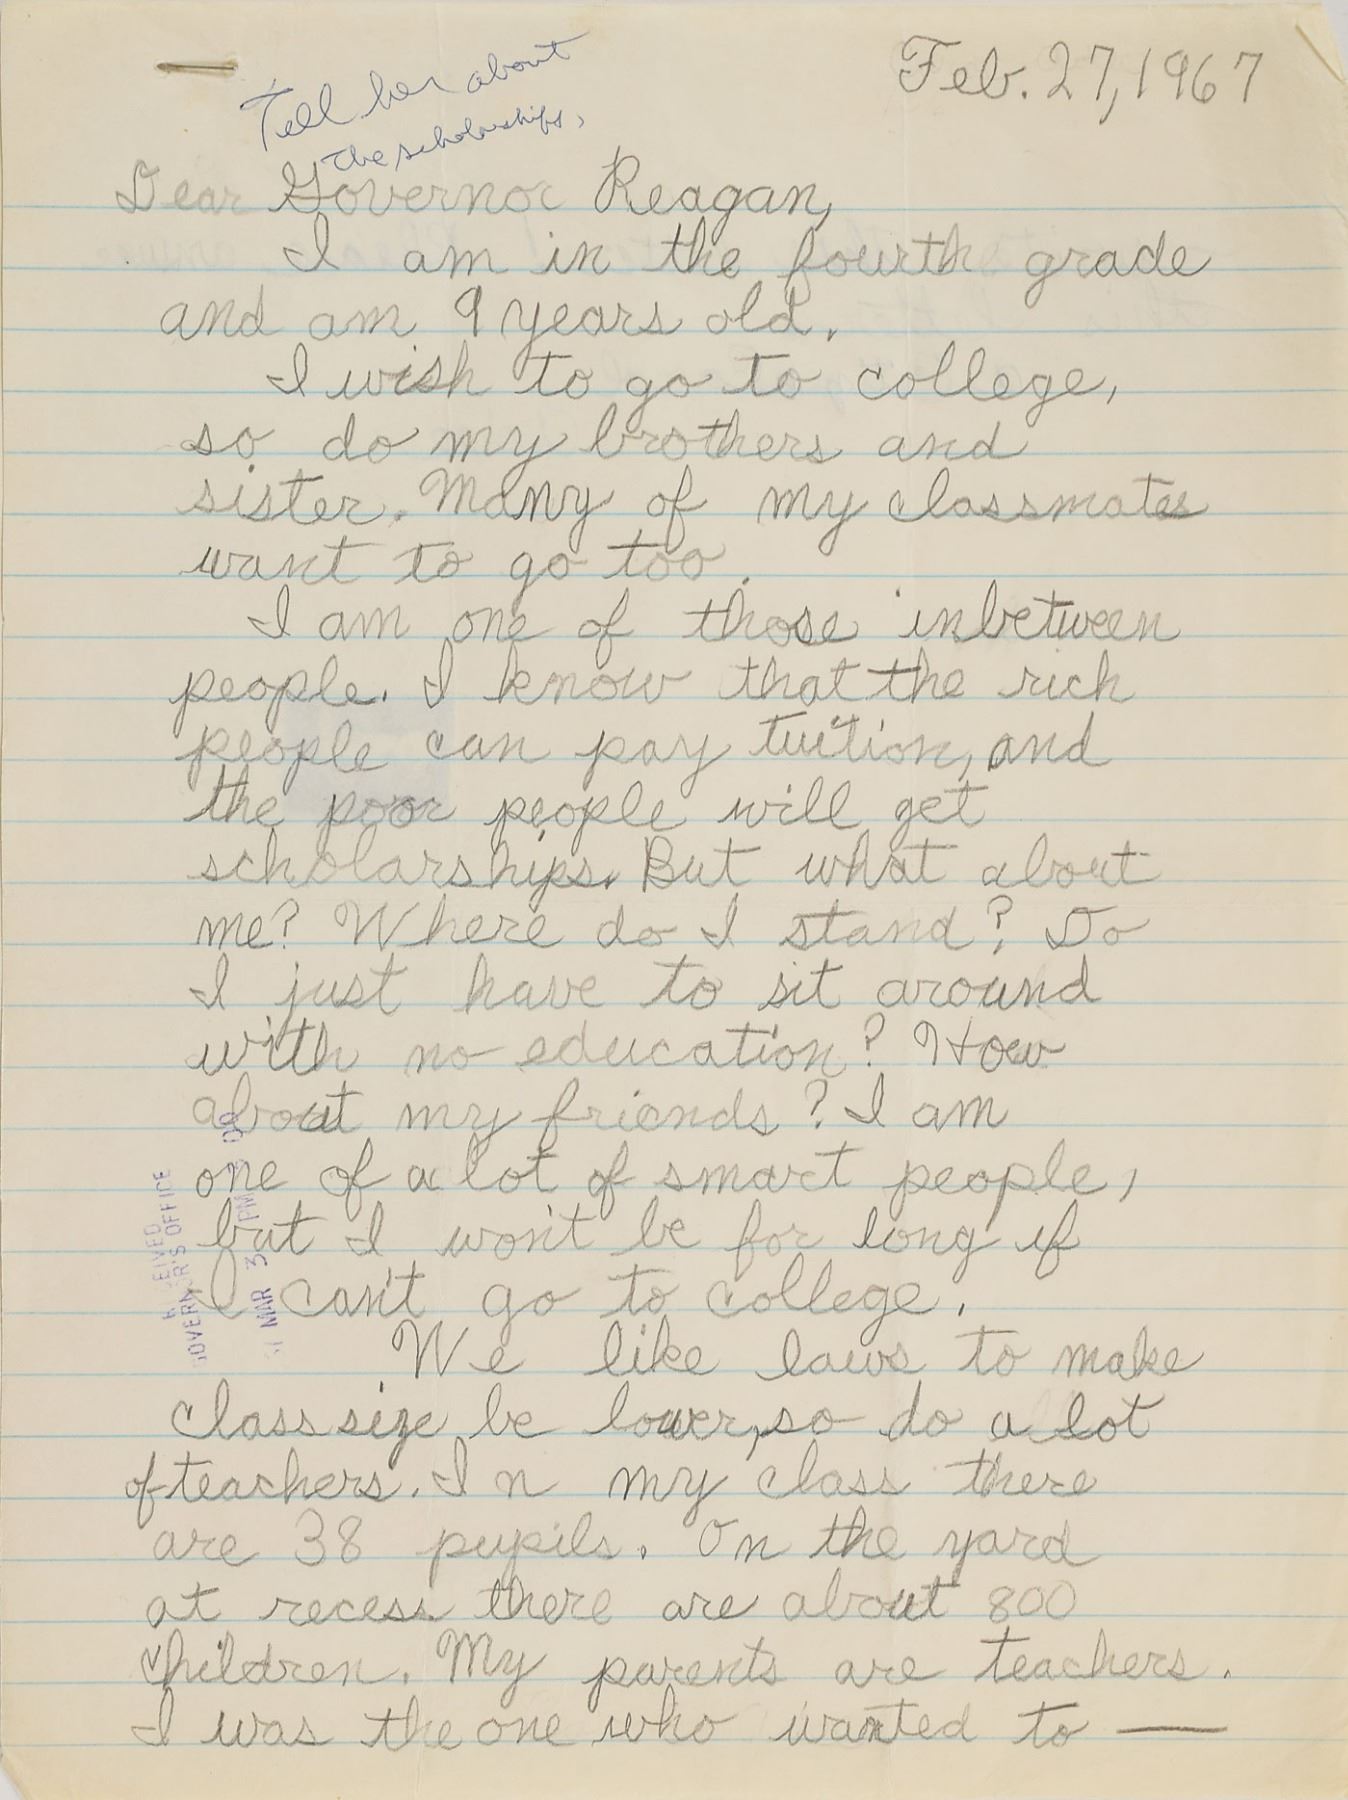 Feb. 27, 1967
Tell her about
the scholarships,
Dear Governor Reagan,
I am in the fourth grade
and am 9 years old.
I wish to go to college,
so do my brothers and
sister. Many of my classmates
want to go too.
I am one of those inbetween
people. I know that the rich
people can pay tuition, and
the poor people will get
scholarships. But what about
me? Where do I stand? Do
I just have to sit around
with no education? How
about my friends? I am
one of a lot of smart people,
but I won't be for long if
I can't go to college.
We like laws to make
class size be lower, so do a lot
of teachers. In my class there
are 38 pupils. On the yard
at recess there are about 800
children. My parents are teachers.
I was the one who wanted to —
RECEIVED
GOVERNOR'S OFFICE
MAR 3 PM